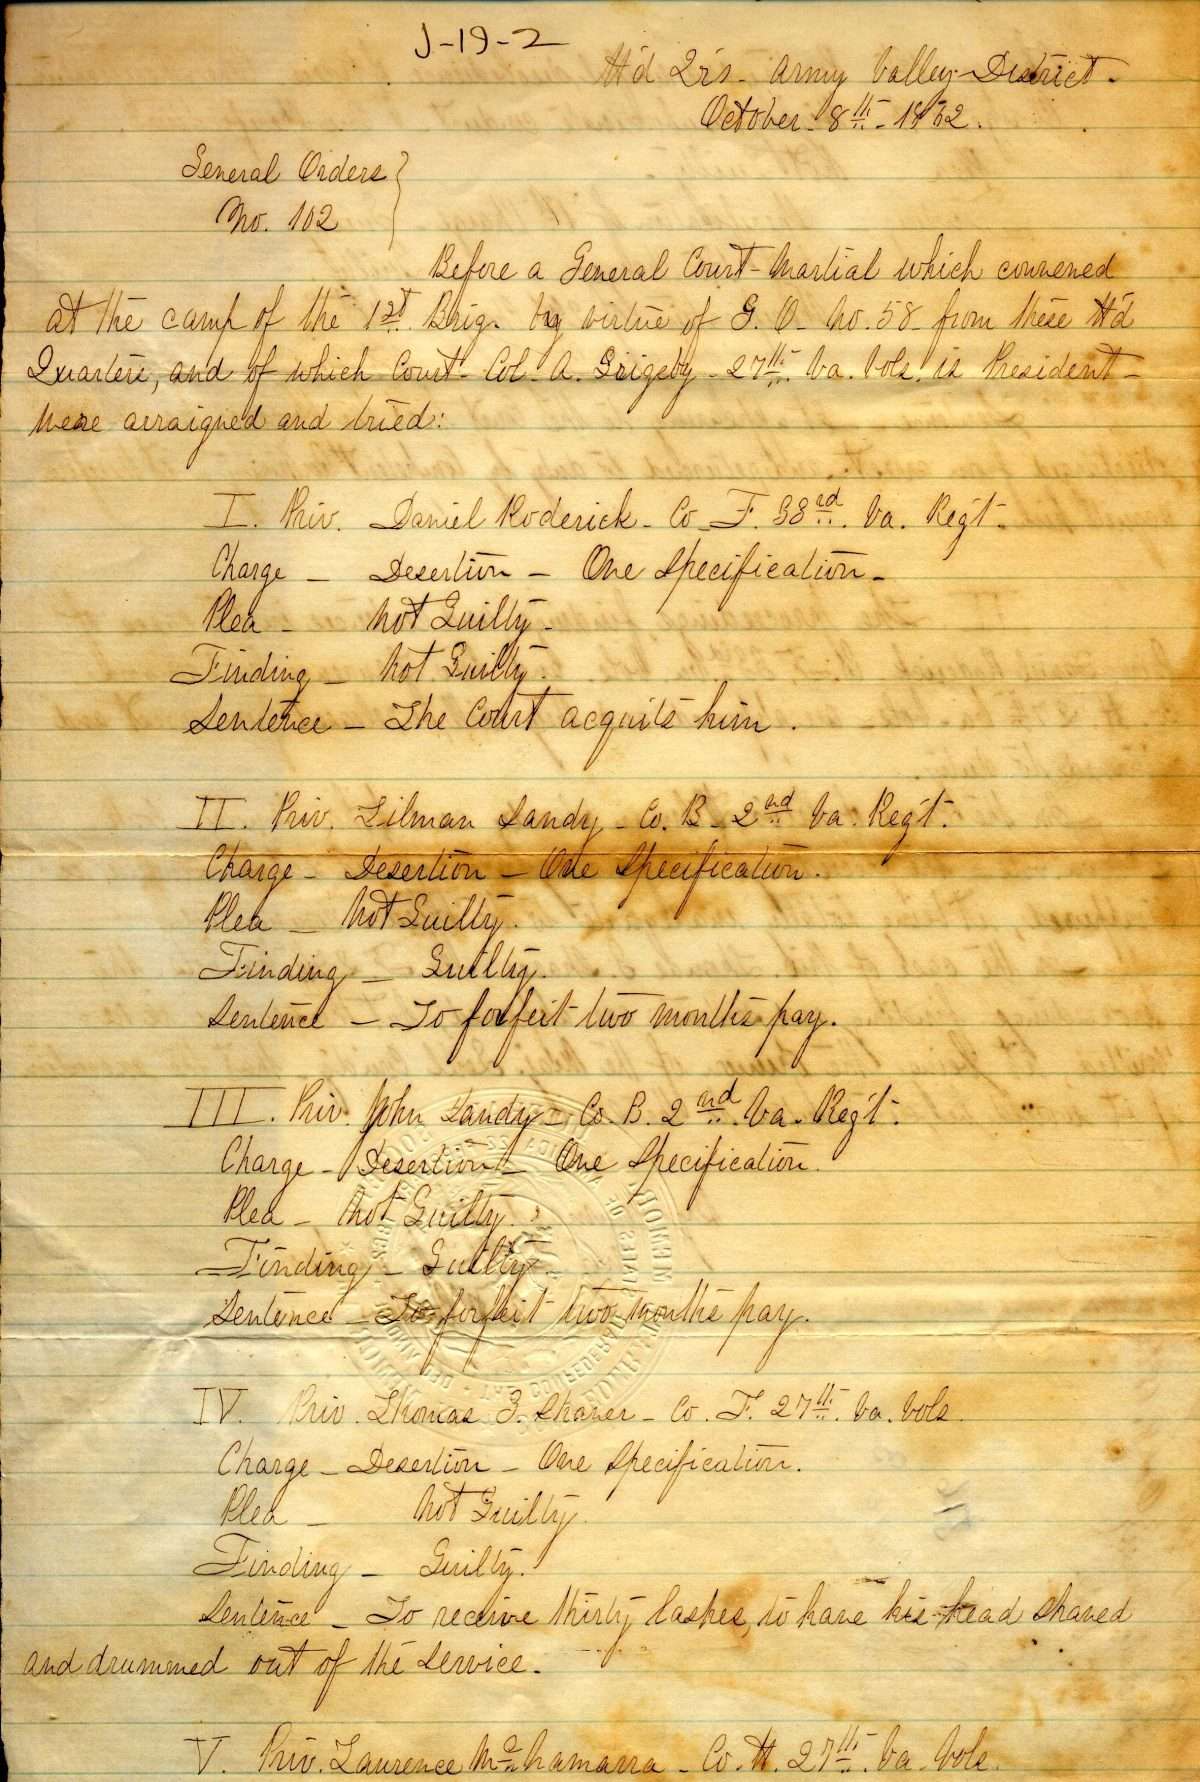 J-19-2
H'd Qrs - Army Valley District.
October - 8th - 1862.
General Orders
No. 102
Before a General Court-Martial which convened
at the camp of the 1st Brig. by virtue of G. O. No. 58 from these H'd
Quarters, and of which Court - Col. A. Grigsby - 27th Va. Vols. is President -
were arraigned and tried:
I. Priv. Daniel Roderick - Co. F. 33rd Va. Reg't.
Charge - Desertion - One Specification -
Plea - Not Guilty -
Finding - Not Guilty.
Sentence - The Court acquits him.
II. Priv. Tilman Landy - Co. B - 2nd Va. Reg't.
Charge - Desertion - One Specification.
Plea - Not Guilty.
Finding - Guilty.
Sentence - To forfeit two months pay.
III. Priv. John Landy - Co. B. 2nd Va. Reg't.
Charge - Desertion - One Specification.
Plea - Not Guilty.
Finding - Guilty.
Sentence - To forfeit two months pay.
IV. Priv. Thomas J. Shaver - Co. F. 27th Va. Vols.
Charge - Desertion - One Specification.
Plea - Not Guilty.
Finding - Guilty.
Sentence - To receive thirty lashes, to have his head shaved
and drummed out of the service.
V. Priv. Laurence McNamarra - Co. H. 27th Va. Vols.